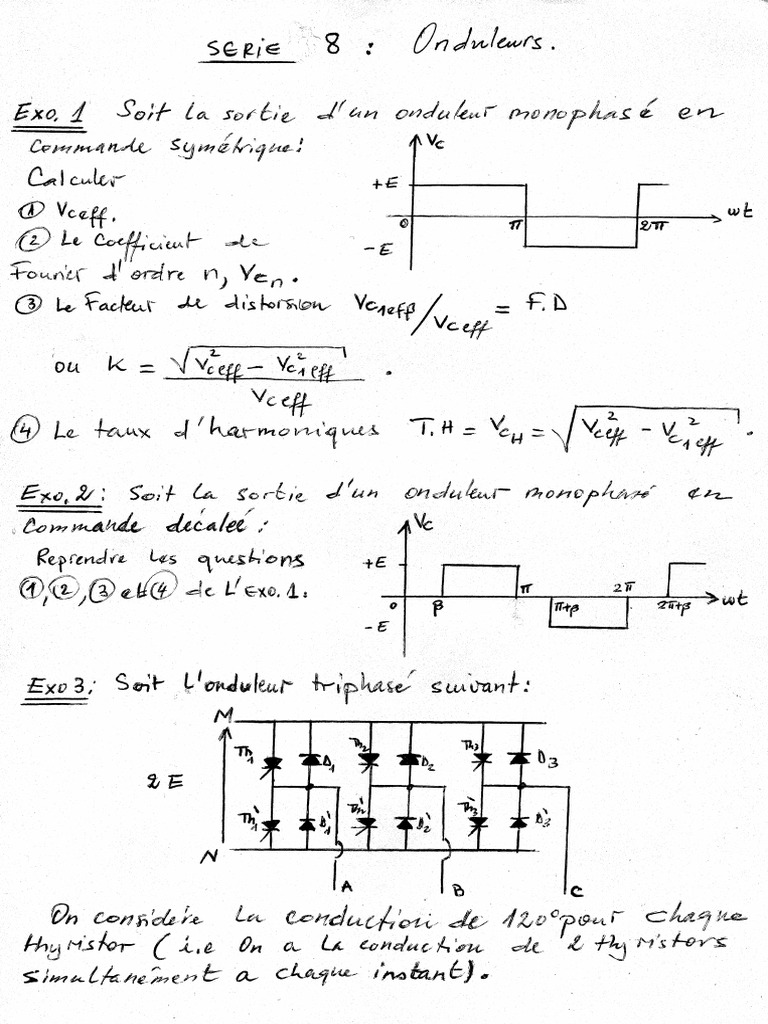 SERIE 8 : Onduleurs.
Exo.1 Soit la sortie d'un onduleur monophasé en
commande symétrique:
Calculer
① Vceff.
② Le coefficient de
Fourier d'ordre n, Vcn.
③ Le Facteur de distorsion Vc1eff/Vceff = F.D
ou K = √(Vc²eff - Vc1²eff) / Vceff .
④ Le taux d'harmoniques T.H = VcH = √(Vc²eff - Vc1²eff) .
Vc
+E
0 π 2π ωt
-E
Exo.2 : Soit la sortie d'un onduleur monophasé en
Commande décaleé :
Reprendre les questions
①, ②, ③ et ④ de L'Exo.1.
Vc
+E
0 β π π+β 2π 2π+β ωt
-E
Exo 3 : Soit L'onduleur triphasé suivant :
M
Th1 D1 Th2 D2 Th3 D3
2 E
Th'1 D'1 Th'2 D'2 Th'3 D'3
N
A B C
On considère la conduction de 120° pour chaque
thyristor (i.e On a la conduction de 2 thyristors
simultanêment a chaque instant).